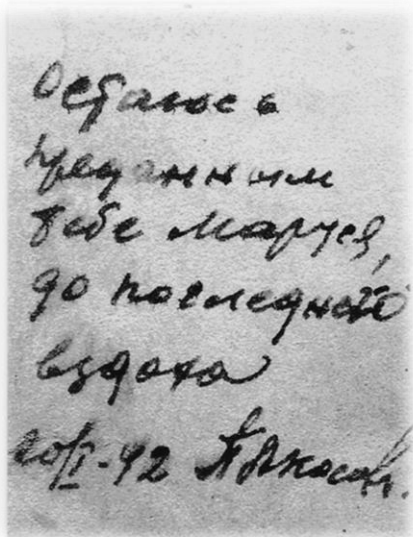 Остаюсь
преданным
тебе Маруся,
до последнего
вздоха
20/I-42